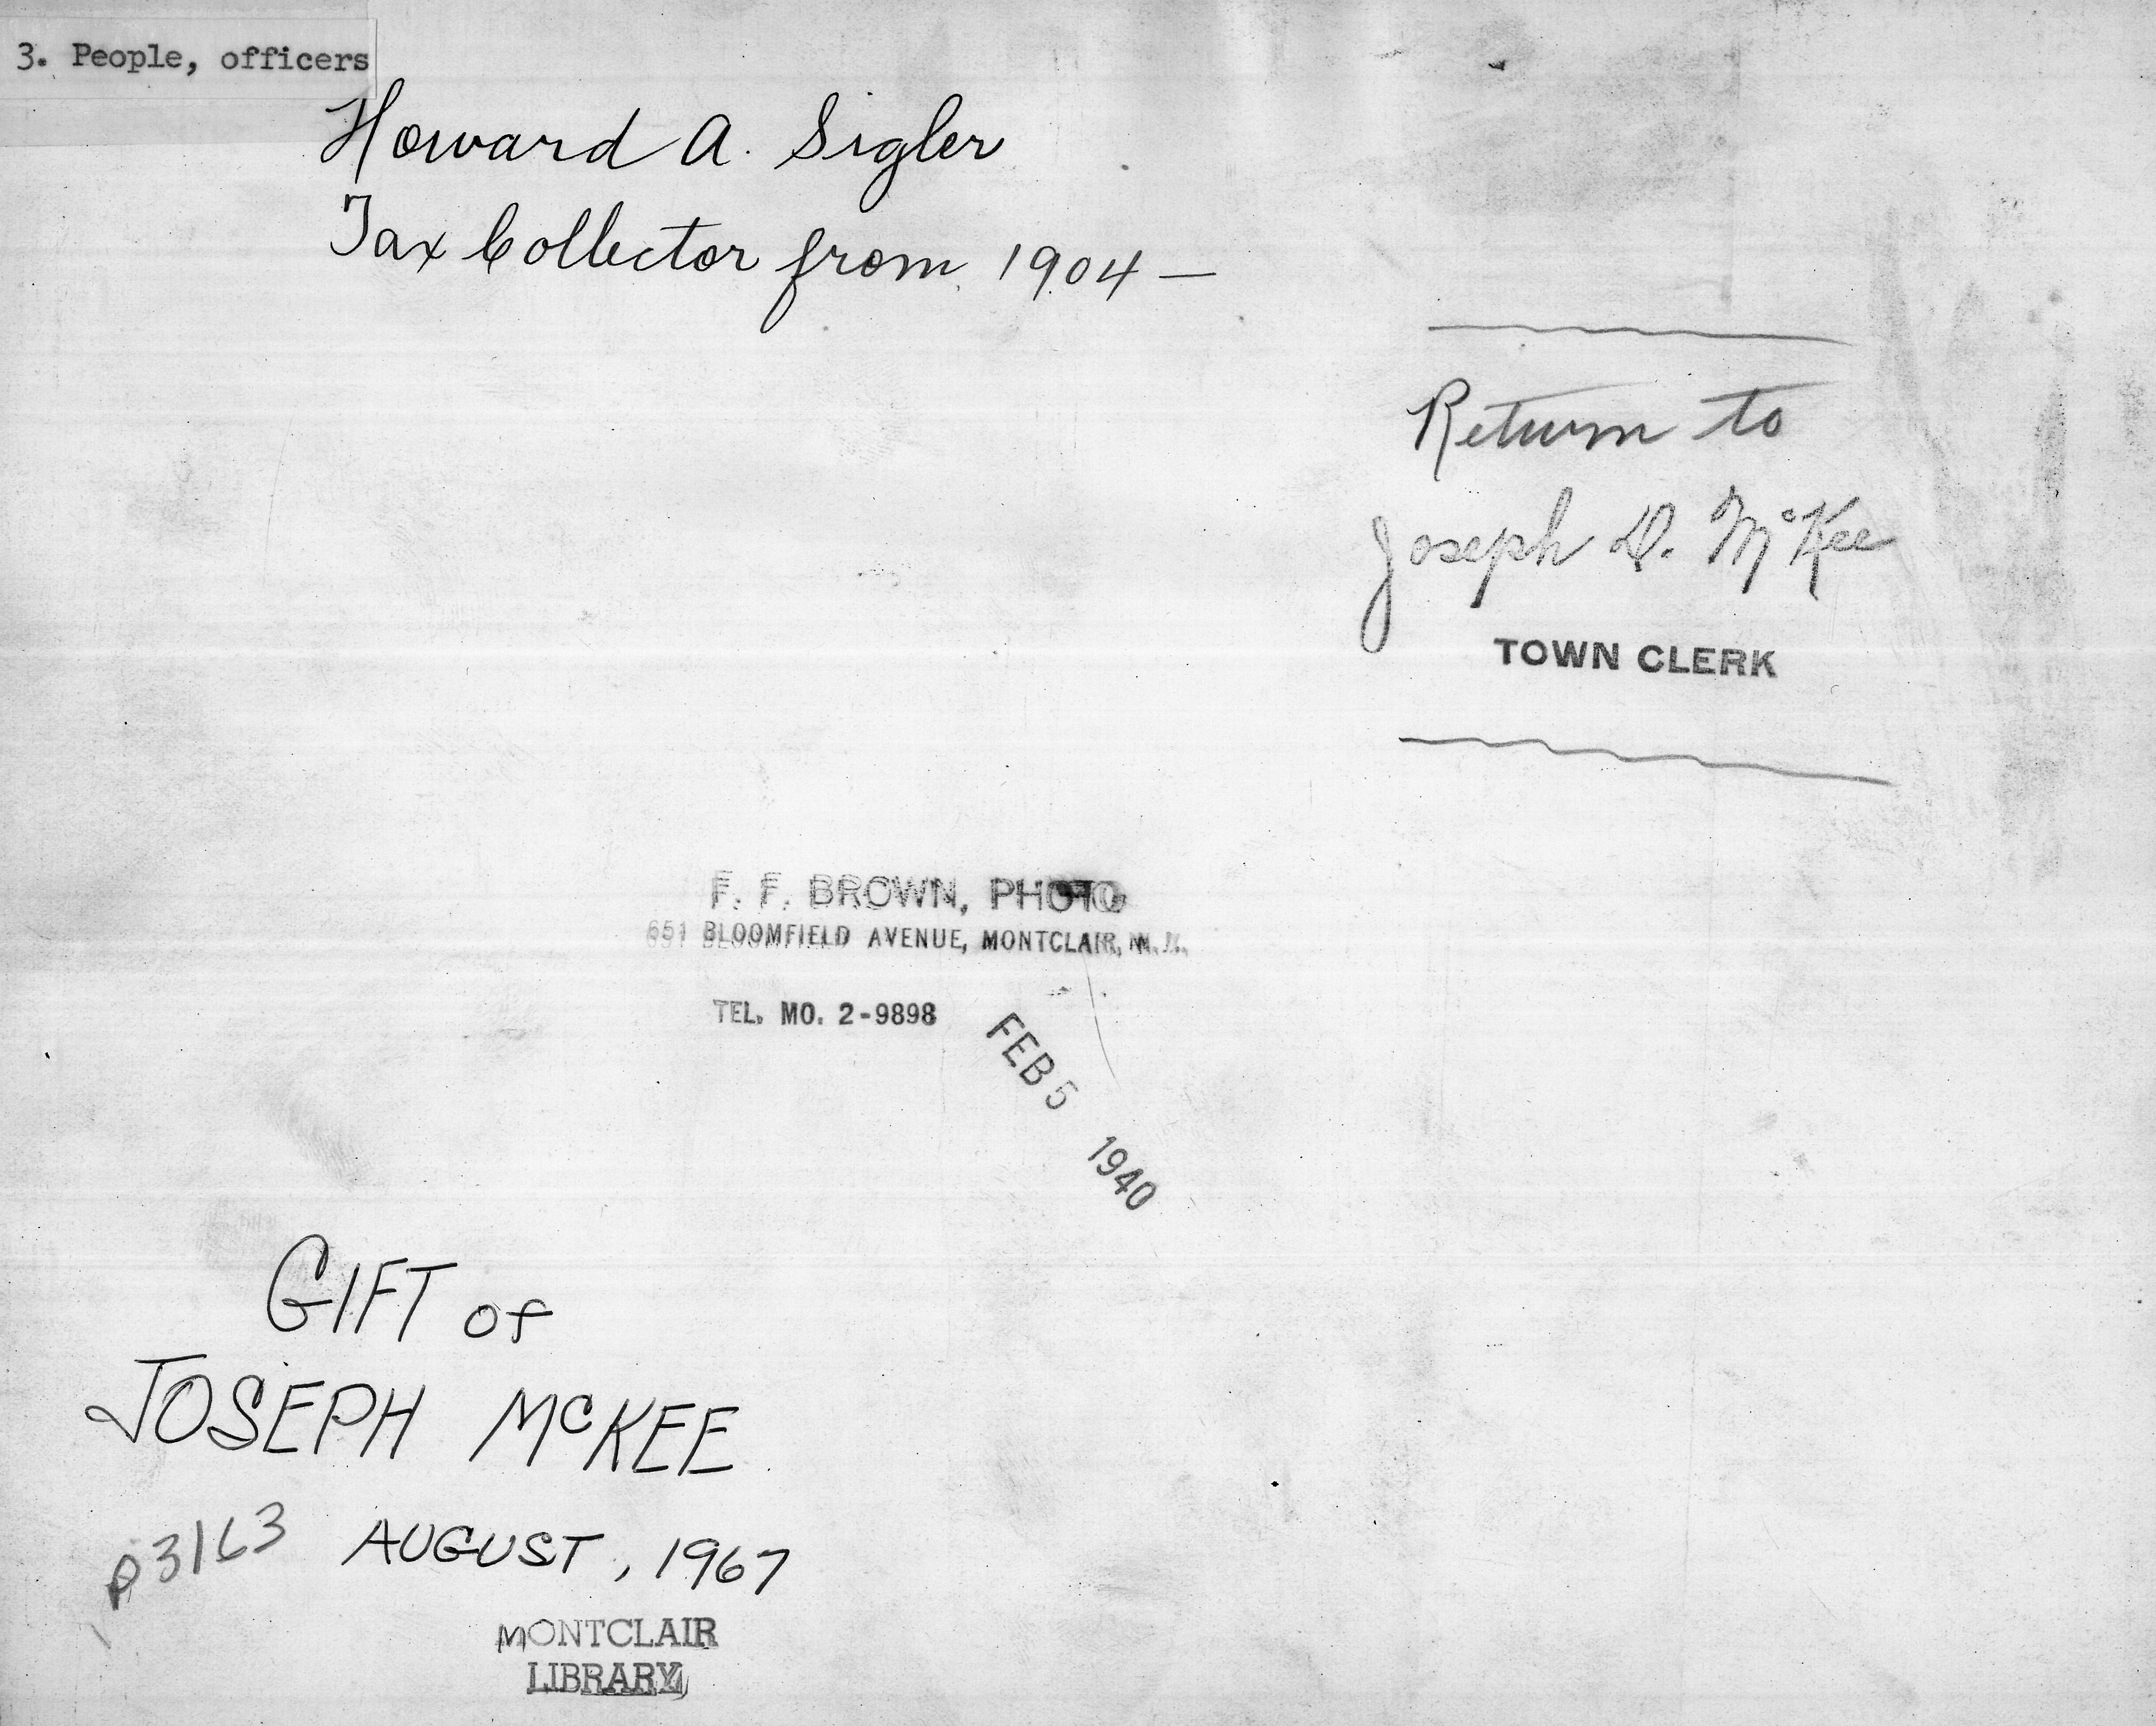 3. People, officers
Howard A. Sigler
Tax Collector from 1904 —
Return to
Joseph D. McKee
TOWN CLERK
F. F. BROWN, PHOTO
651 BLOOMFIELD AVENUE, MONTCLAIR, N. J.
TEL. MO. 2-9898
FEB 5 1940
GIFT of
JOSEPH McKEE
P3163 AUGUST, 1967
MONTCLAIR
LIBRARY